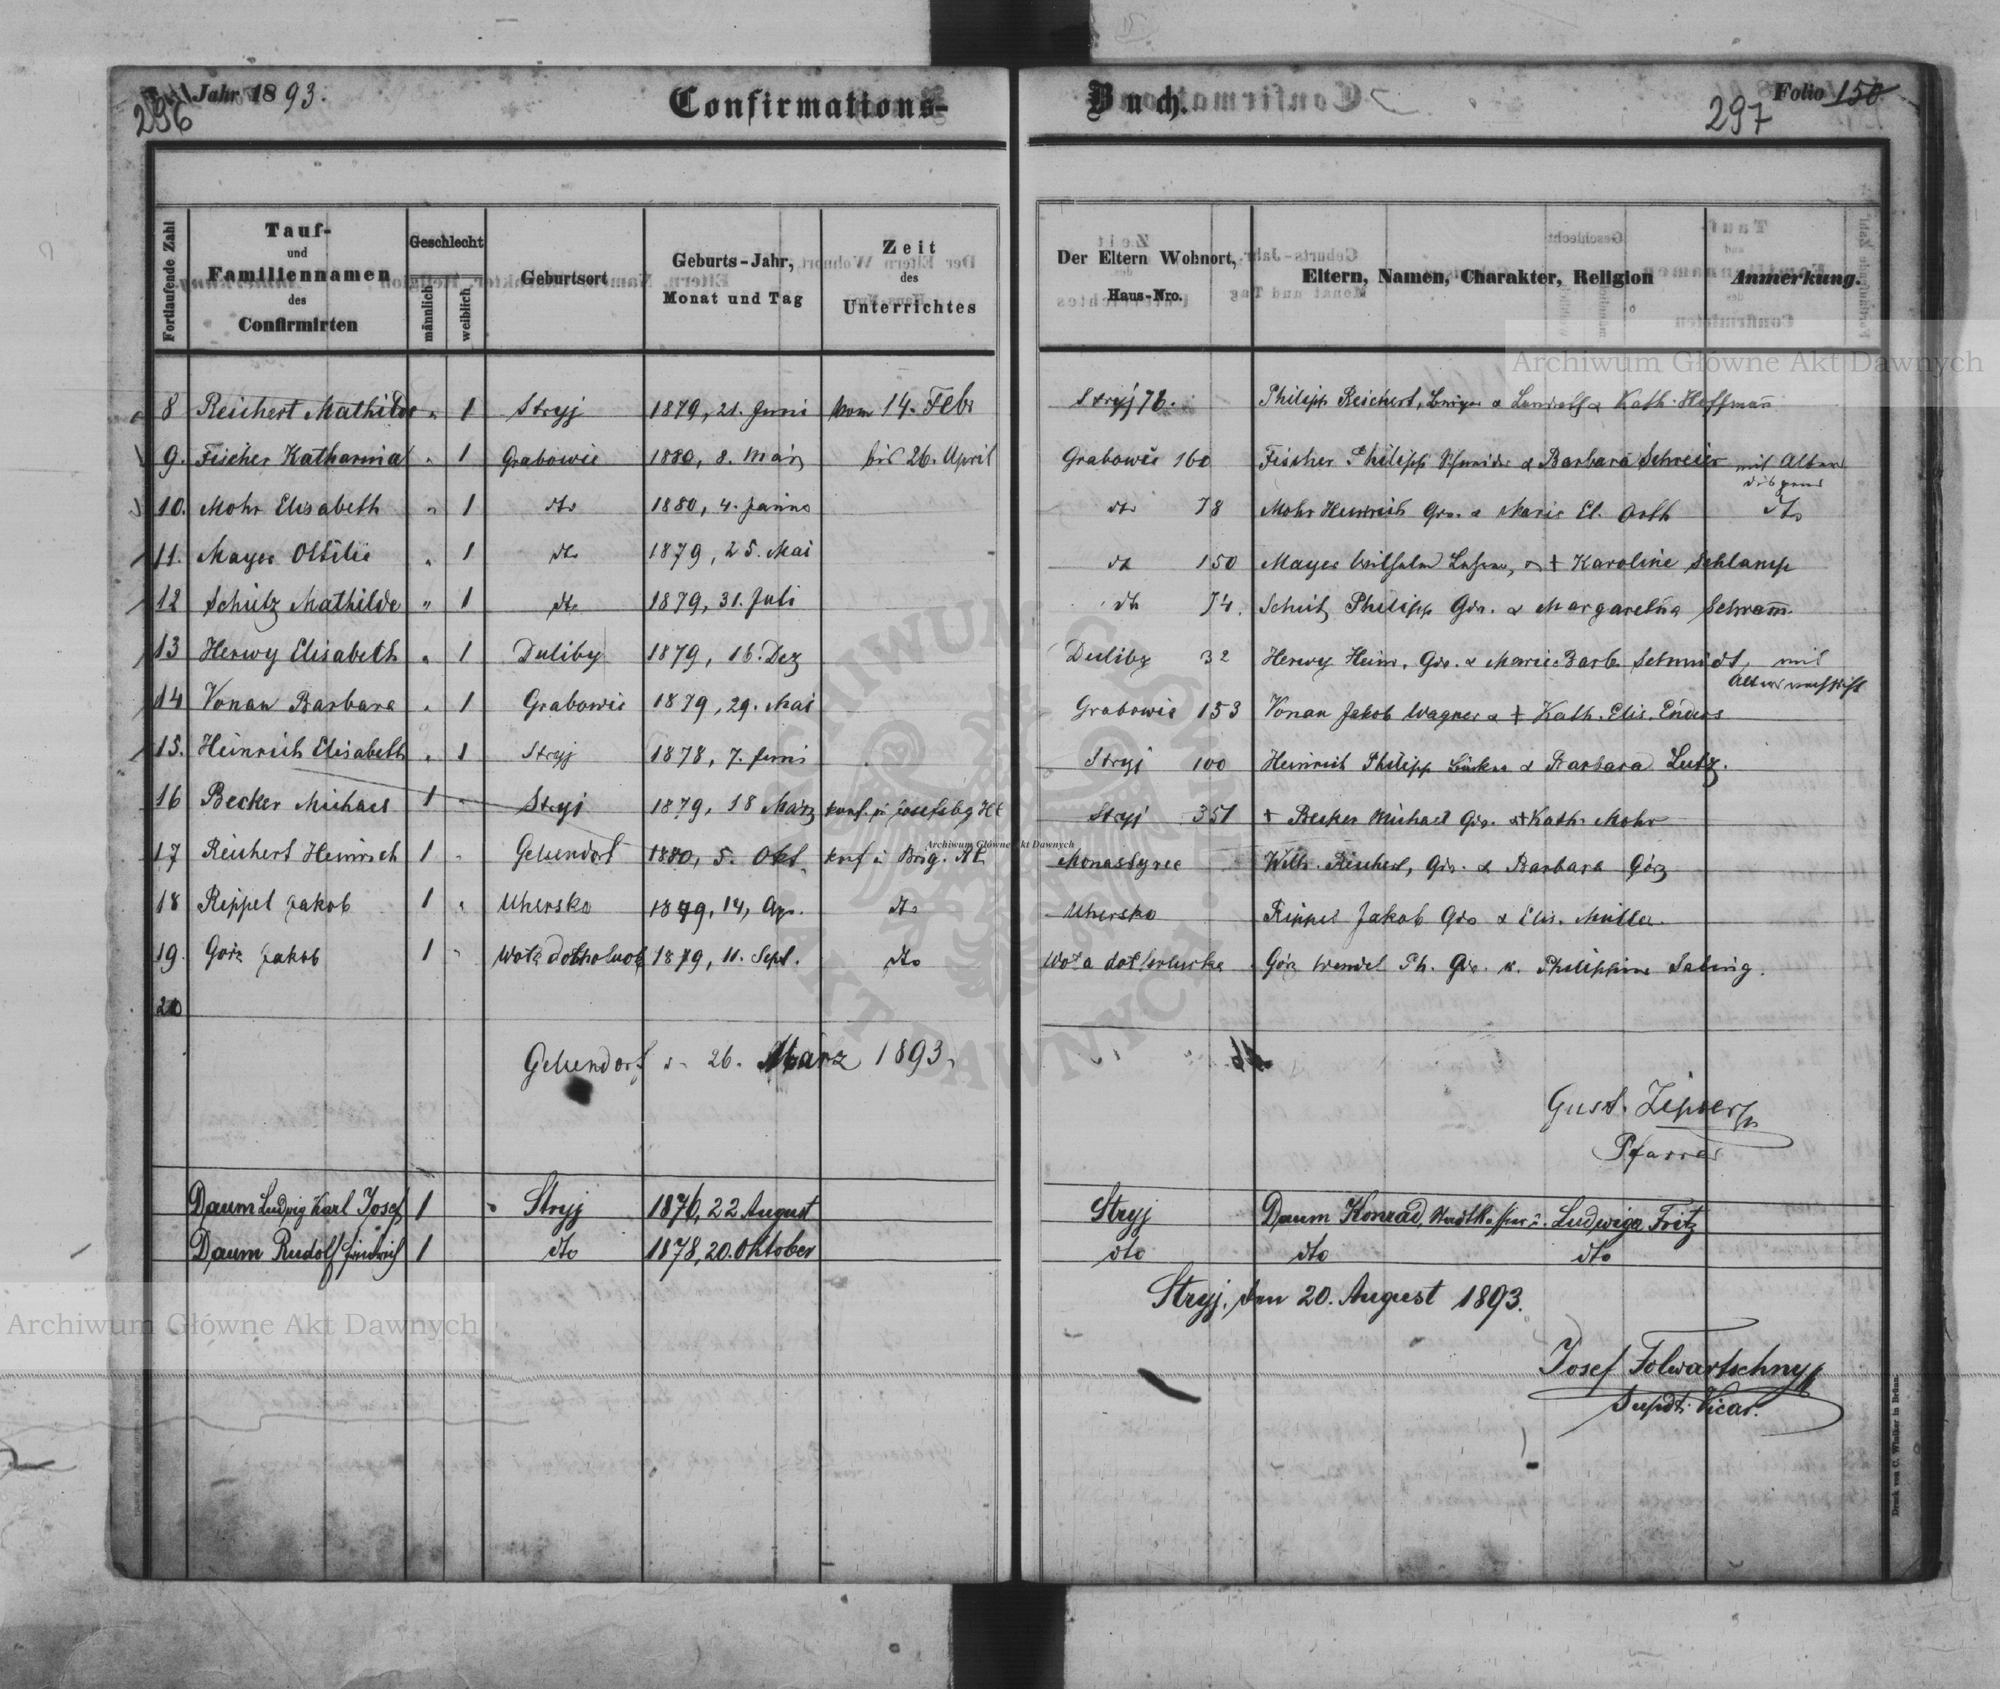 296 Jahr 1893. Confirmations-
Buch. 297 Folio 150
Fortlaufende Zahl
Tauf- und Familiennamen des Confirmirten
Geschlecht
männlich
weiblich
Geburtsort
Geburts-Jahr, Monat und Tag
Zeit des Unterrichtes
Der Eltern Wohnort, Haus-Nro.
Eltern, Namen, Charakter, Religion
Anmerkung.
8 Reichert Mathilde " 1 Stryj 1879, 21. Juni vom 14. Feb. Stryj 76. Philipp Reichert, & Kath. Hoffman̄
9. Fischer Katharina " 1 Grabowic 1880, 8. März bis 26. April Grabowic 160 Fischer Philipp Schneider & Barbara Schreier mit Alters
dispens
10. Mohr Elisabeth " 1 dto 1880, 4. Jänner dto 78 Mohr Heinrich Gr. & Marie El. Orth dto
11. Mayer Ottilie " 1 dto 1879, 25. Mai dto 150 Mayer Wilhelm Lehrer, & + Karoline Schlamp
12 Schütz Mathilde " 1 dto 1879, 31. Juli dto 74. Schütz Philipp Gr. & Margaretha Schram̄.
13 Herwy Elisabeth " 1 Duliby 1879, 16. Dez Duliby 32 Herwy Heinr. Gr. & Marie Barb. Schmidt, mit
Altersnachsicht
14 Vonau Barbara " 1 Grabowic 1879, 29. Mai Grabowic 153 Vonau Jakob Wagner & + Kath. Elis. Enders
15. Heinrich Elisabeth " 1 Stryj 1878, 7. Juni Stryj 100 Heinrich Philipp & Barbara Lutz.
16 Becker Michael 1 " Stryj 1879, 18 März konf. in Josefsbg HC Stryj 351 + Becker Michael Gr. & + Kath. Mohr
17 Reichert Heinrich 1 " Gelsendorf 1880, 5. Okt. konf. i Brig. AC Monastyrec Wilh. Reichert, Gr. & Barbara Görz
18 Rippel Jakob 1 " Uhersko 1879, 14. Ap. dto Uhersko Rippel Jakob Gr. & Elis. Müller.
19. Görz Jakob 1 " Wola dołholucka 1879, 11. Sept. dto Wola dołholucka Görz Wendel Ph. Gr. u. Philippine Saling.
20
Gelsendorf d. 26. März 1893.
Gust. Zipser
Pfarrer
Daum Ludwig Karl Josef 1 " Stryj 1876, 22 August Stryj Daum Konrad, Stadtkassier u. Ludwiga Fritz
Daum Rudolf Friedrich 1 dto 1878, 20. Oktober dto dto dto
Stryj, den 20. August 1893.
Josef Folwartschny
Supdt. Vicar.
Druck von C. Winiker in Brünn.
Archiwum Główne Akt Dawnych
Archiwum Główne Akt Dawnych
Archiwum Główne Akt Dawnych
ARCHIWUM GŁÓWNE AKT DAWNYCH